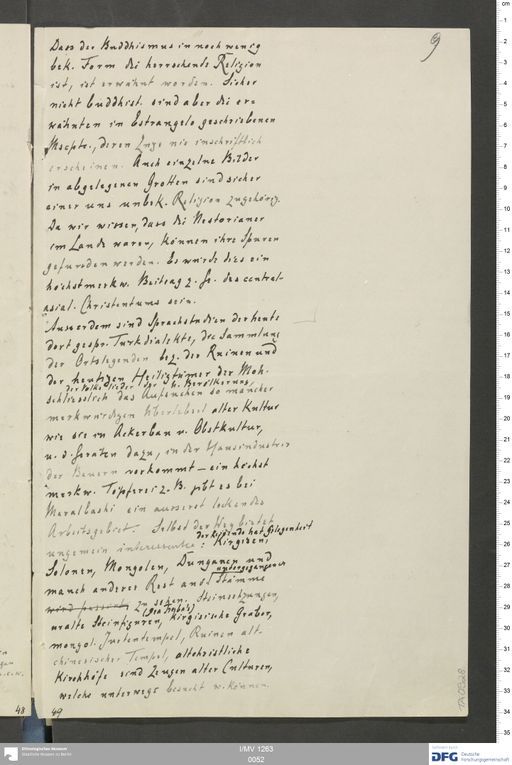 9
Dass der Buddhismus in noch wenig
bek. Form die herrschende Religion
ist, ist erwähnt worden. Sicher
nicht buddhist. sind aber die er-
wähnten in Estrangelo geschriebenen
Mscpte., deren Züge nie inschriftlich
erscheinen. Auch einzelne Bilder
in abgelegenen Grotten sind sicher
einer uns unbek. Religion zugehörig.
Da wir wissen, dass die Nestorianer
im Lande waren, können ihre Spuren
gefunden werden. Es würde dies ein
höchst merkw. Beitrag z. Gs. des central-
asial. Christentums sein.
Ausserdem sind Sprachstudien der heute
dort gespr. Turkdialekte, die Sammlung
der Ortslegenden bez. der Ruinen und
der heutigen Heiligtümer der Moh.
der Volkslieder der h. Bevölkerung,
schliesslich das Aufsuchen so mancher
merkwürdigen Überlebsel alter Kultur
wie sie im Ackerbau u. Obstkultur,
u. d. Geräten dazu, in der Hausindustrie
der Bauern vorkommt – ein höchst
merkw. Töpferei z. B. gibt es bei
Maralbaschi ein äusserst lockendes
Arbeitsgebiet. Selbst der Weg bietet
ungemein interessante: der Reisende hat Gelegenheit
Kirgisen,
Solonen, Mongolen, Dunganen und
manch anderes Rest and. untergegangener Stämme
zu sehen. Steinsetzungen,
uralte Steinfiguren, Kirgisische Gräber,
mongol. Tempel, Ruinen alt-
chinesischer Tempel, altchristliche
Kirchhöfe sind Zeugen alter Culturen,
welche unterwegs besucht w. können.
48
49
TA 0528
Ethnologisches Museum
Staatliche Museen zu Berlin
I/MV 1263
0052
gefördert durch
DFG Deutsche
Forschungsgemeinschaft
cm
1
2
3
4
5
6
7
8
9
10
11
12
13
14
15
16
17
18
19
20
21
22
23
24
25
26
27
28
29
30
31
32
33
34
35